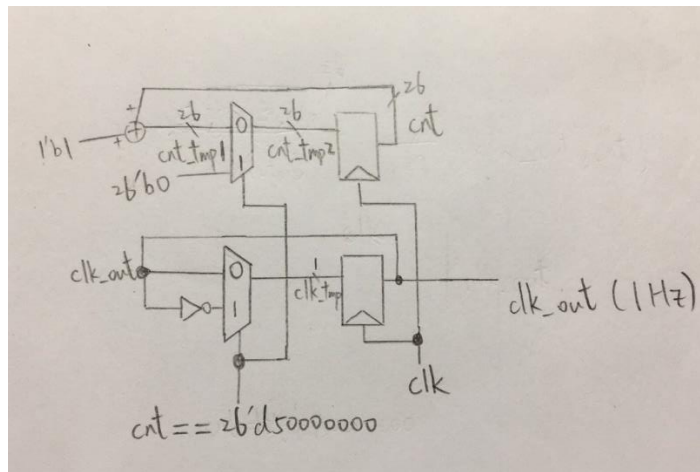 +
26
26
26
cnt
1'b1
+
+
0
1
cnt_tmp1
cnt_tmp2
26'b0
clk_out
0
1
1
clk_tmp
clk_out (1 Hz)
clk
cnt == 26'd50000000